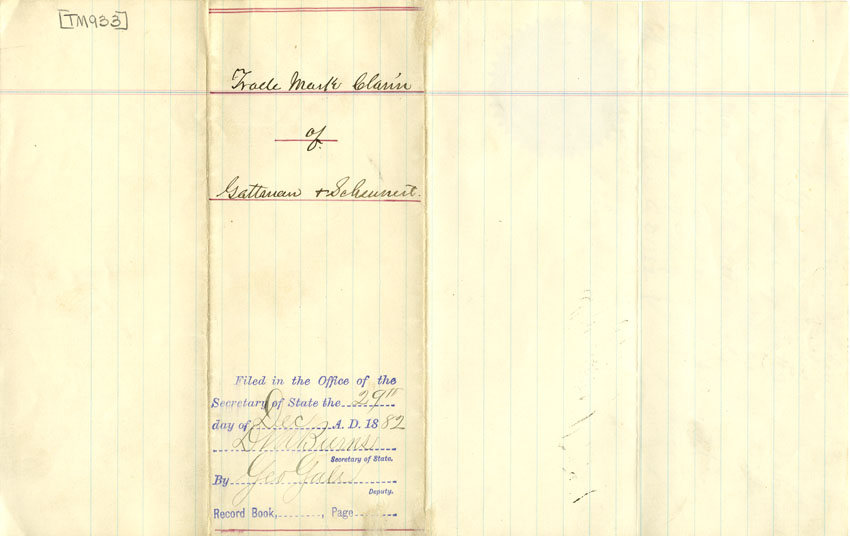 [TM933]
Trade Mark Claim
of
Gattman & Scheunert.
Filed in the Office of the
Secretary of State the 29th
day of Dec A. D. 1882
D M Burns
Secretary of State.
By Geo
Deputy.
Record Book, , Page